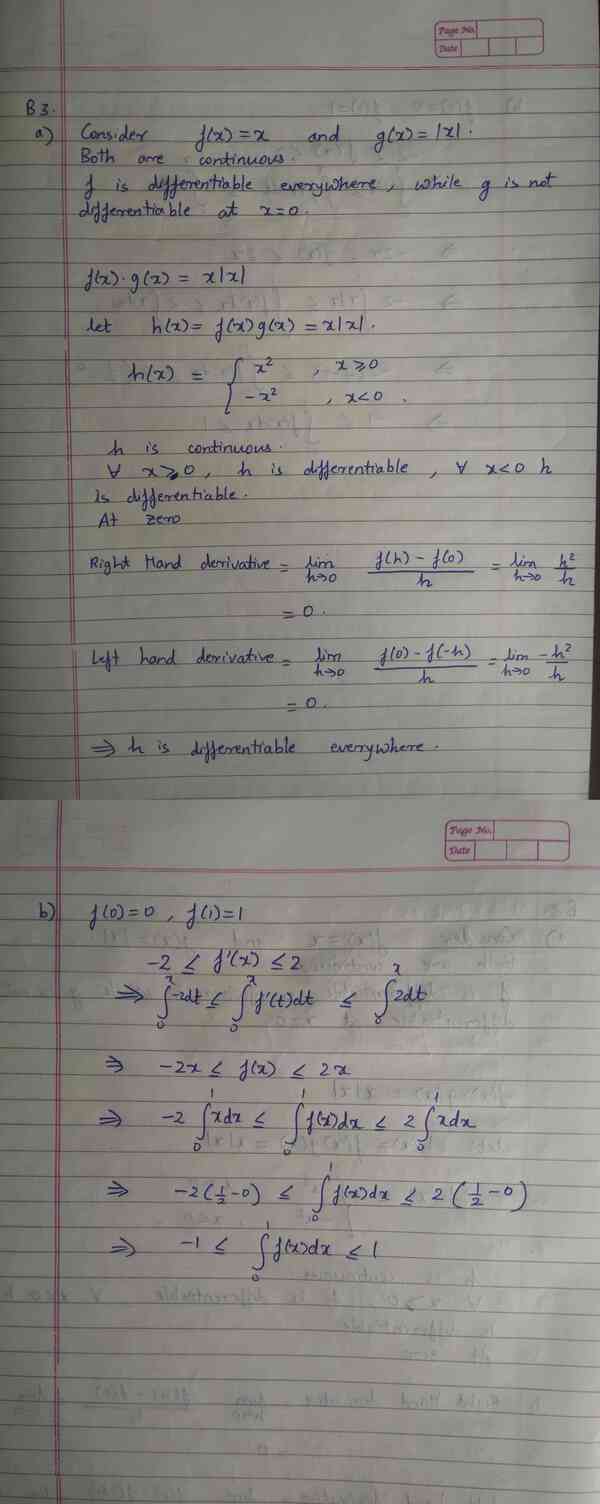 Page No.
Date
B3.
a) Consider f(x)=x and g(x)=|x|.
Both are continuous.
f is differentiable everywhere, while g is not
differentiable at x=0.
f(x)·g(x) = x|x|
let h(x)= f(x)g(x) = x|x|.
h(x) = { x² , x≥0
-x² , x<0 .
h is continuous.
∀ x≥0, h is differentiable, ∀ x<0 h
is differentiable.
At zero
Right Hand derivative = lim h→0 (f(h) - f(0))/h = lim h→0 h²/h
= 0.
Left hand derivative = lim h→0 (f(0)-f(-h))/h = lim h→0 -h²/h
= 0.
⇒ h is differentiable everywhere.
Page No.
Date
b) f(0)=0 , f(1)=1
-2 ≤ f'(x) ≤ 2
⇒ ∫₀ˣ -2dt ≤ ∫₀ˣ f'(t)dt ≤ ∫₀ˣ 2dt
⇒ -2x ≤ f(x) ≤ 2x
⇒ -2 ∫₀¹ xdx ≤ ∫₀¹ f(x)dx ≤ 2 ∫₀¹ xdx
⇒ -2(1/2-0) ≤ ∫₀¹ f(x)dx ≤ 2(1/2-0)
⇒ -1 ≤ ∫₀¹ f(x)dx ≤ 1